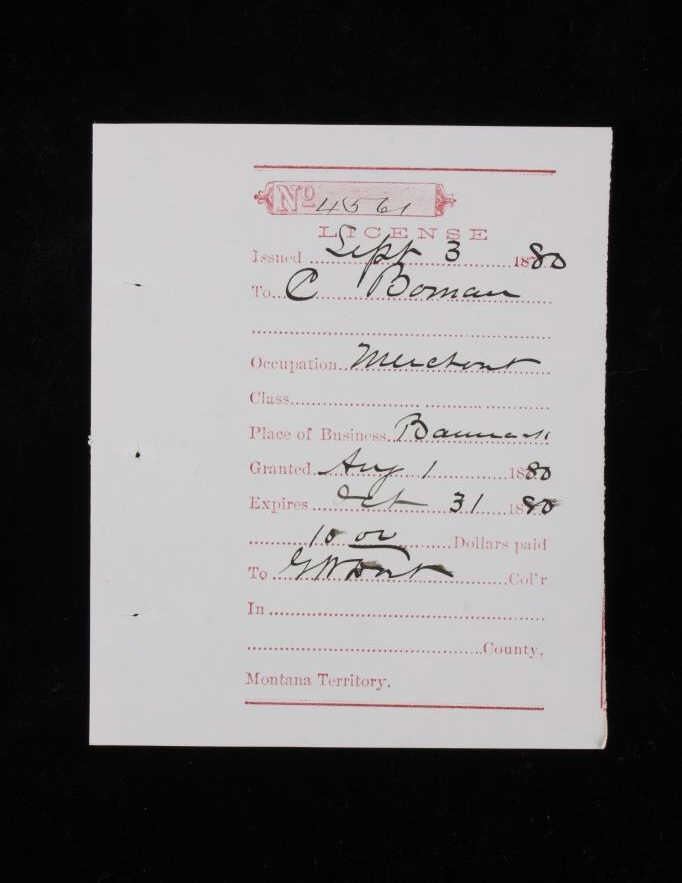 No 4561
LICENSE
Issued Sept 3 1880
To C Boman
Occupation Merchant
Class
Place of Business Bannack
Granted Aug 1 1880
Expires Oct 31 1880
10 00 Dollars paid
To Col'r
In
County,
Montana Territory.